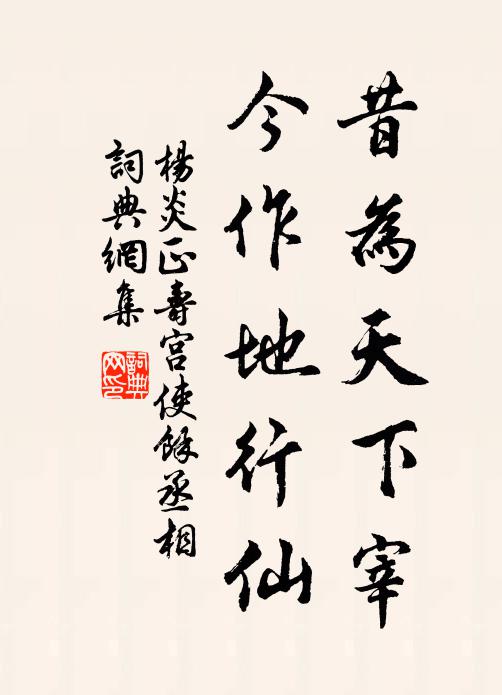 昔為天下宰
今作地行仙
楊炎正壽宮使餘丞相
詞典網集
詞典网印